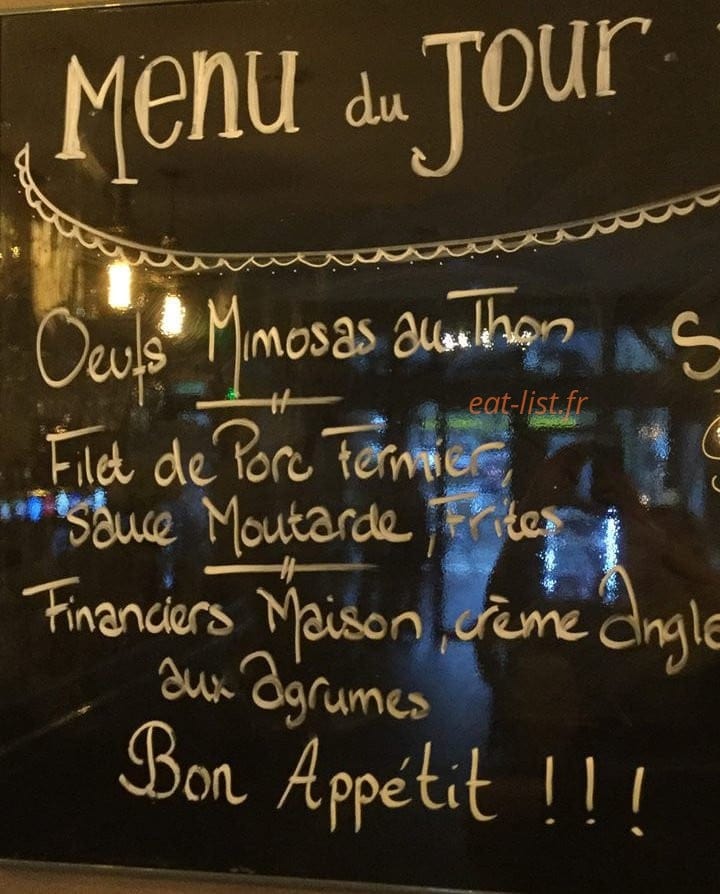 Menu du Jour
Oeufs Mimosas au Thon
S
eat-list.fr
Filet de Porc Fermier,
Sauce Moutarde, Frites
Financiers Maison, crème Angla
aux Agrumes
Bon Appétit !!!